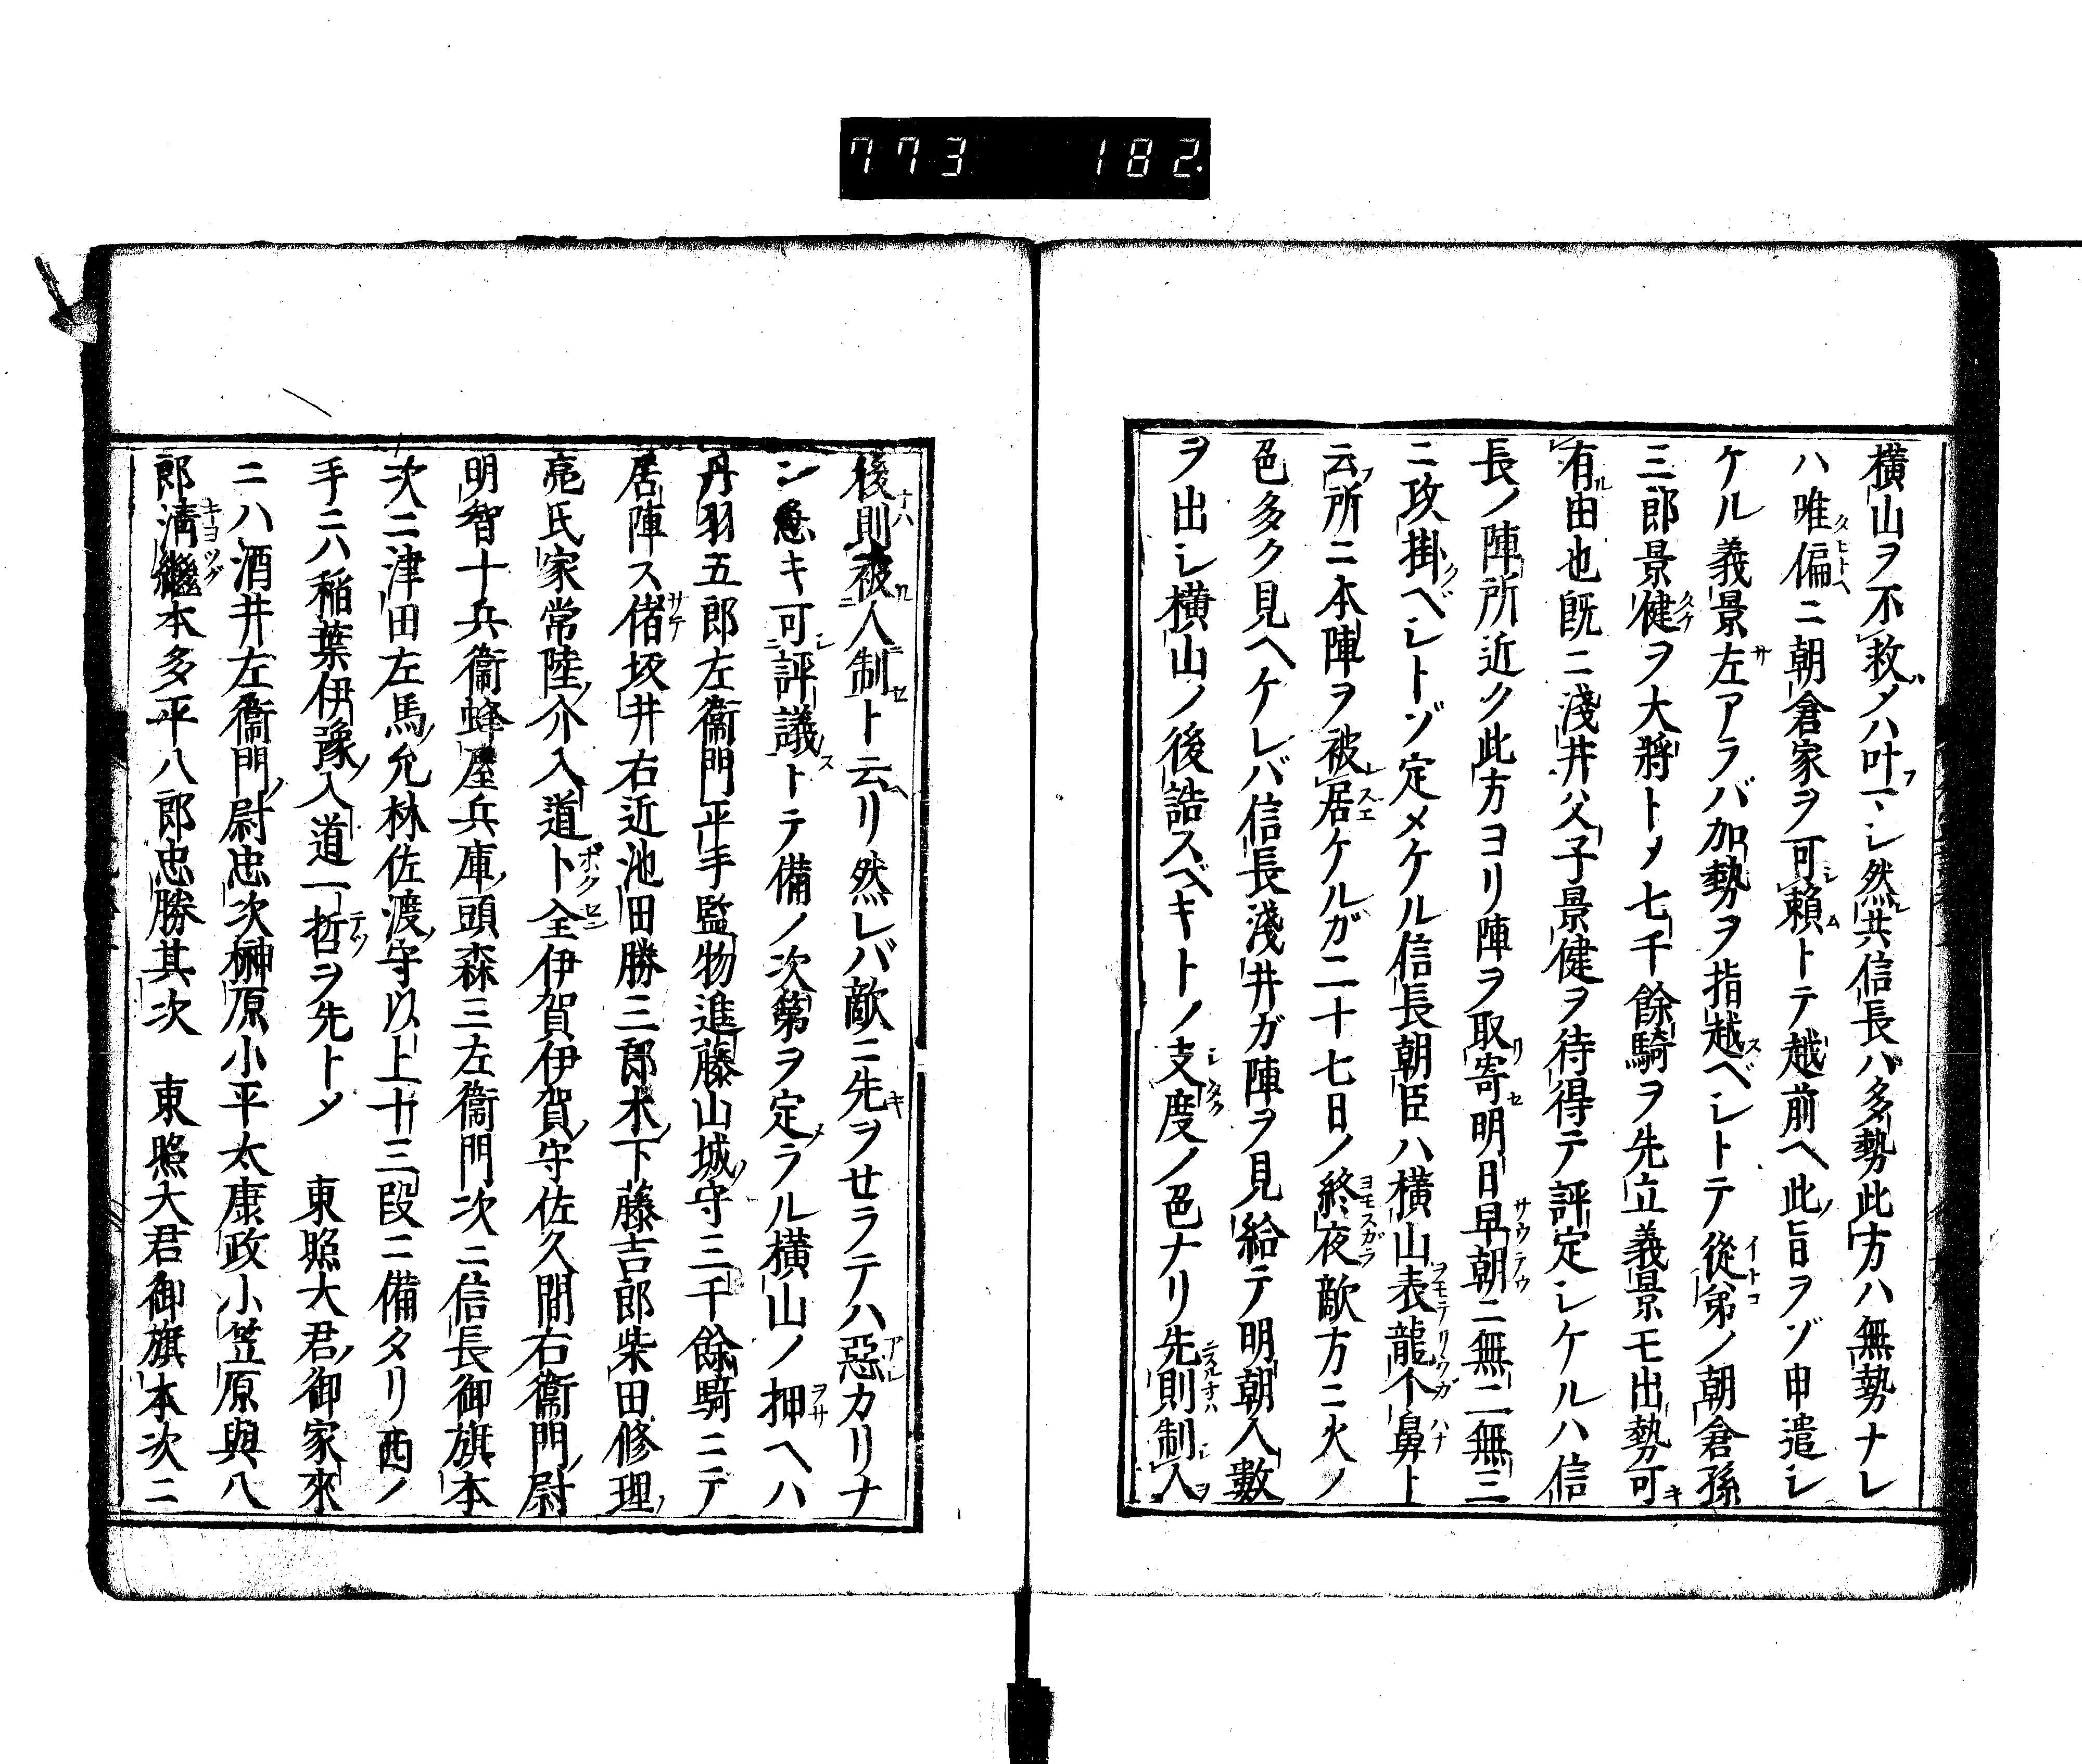 773 182.
横山ヲ不救メハ叶マシ然共信長ハ多勢此方ハ無勢ナレ
ハ唯偏ニ朝倉家ヲ可頼トテ越前ヘ此旨ヲゾ申遣シ
ケル義景左アラバ加勢ヲ指越ベシトテ從弟ノ朝倉孫
三郎景健ヲ大將トメ七千餘騎ヲ先立義景モ出勢可
有由也既ニ淺井父子景健ヲ待得テ評定シケルハ信
長ノ陣所近ク此方ヨリ陣ヲ取寄明日早朝ニ無二無三
ニ攻掛ベシトゾ定メケル信長朝臣ハ横山表龍个鼻ト
云所ニ本陣ヲ被居ケルガ二十七日ノ終夜敵方ニ火ノ
色多ク見ヘケレバ信長淺井ガ陣ヲ見給テ明朝人數
ヲ出シ横山ノ後詰スベキトノ支度ノ色ナリ先則制人
後則被人制ト云リ然レバ敵ニ先ヲせラテハ惡カリナ
ン急キ可評議トテ備ノ次第ヲ定ラル横山ノ押ヘハ
丹羽五郎左衞門平手監物進藤山城守三千餘騎ニテ
居陣ス偖坂井右近池田勝三郎木下藤吉郎柴田修理
亮氏家常陸介入道卜全伊賀伊賀守佐久間右衞門尉
明智十兵衞蜂屋兵庫頭森三左衞門次ニ信長御旗本
次ニ津田左馬允林佐渡守以上十三段ニ備タリ西ノ
手ニハ稲葉伊豫入道一哲ヲ先トメ 東照大君御家來
ニハ酒井左衞門尉忠次榊原小平太康政小笠原與八
郎淸繼本多平八郎忠勝其次 東照大君御旗本次ニ